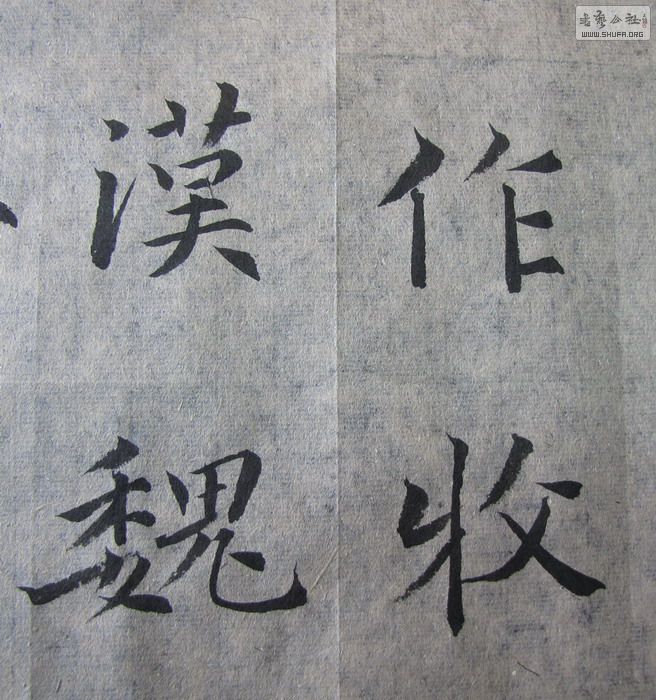 作收
漢魏
書藝公社
WWW.SHUFA.ORG